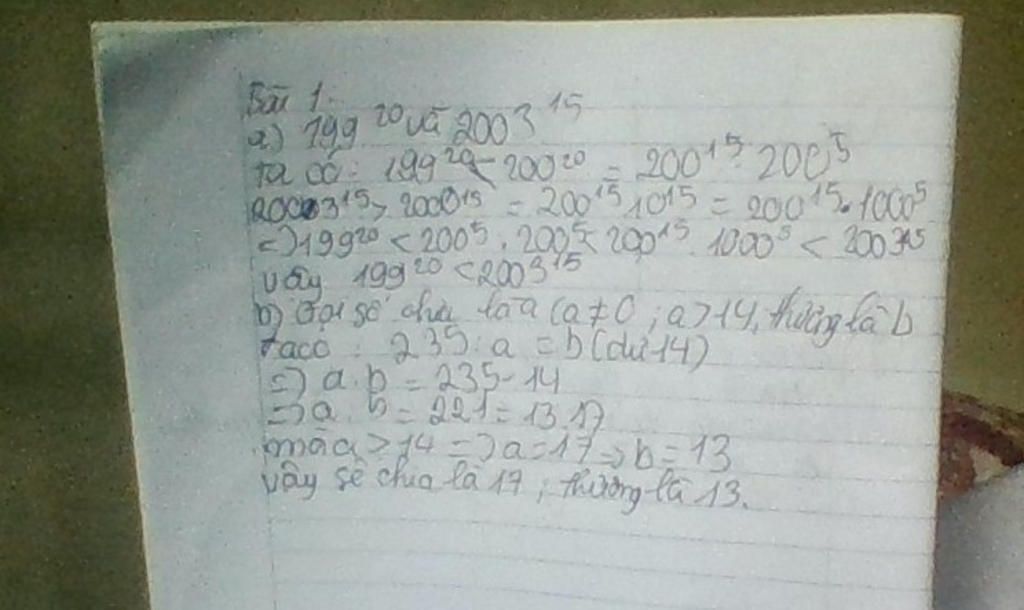 Bài 1.
a) 199²⁰ và 2003¹⁵
Ta có: 199²⁰ < 200²⁰ = 200¹⁵. 200⁵
2003¹⁵ > 2000¹⁵ = 200¹⁵ 10¹⁵ = 200¹⁵. 1000⁵
=> 199²⁰ < 200⁵ . 200⁵ < 200¹⁵ . 1000⁵ < 2003¹⁵
Vậy 199²⁰ < 2003¹⁵
b) Gọi số chia là a (a ≠ 0 ; a > 14, thương là b
Ta có : 235 : a = b (dư 14)
=> a . b = 235 - 14
=> a . b = 221 = 13.17
mà a > 14 => a = 17 => b = 13
Vậy số chia là 17 ; thương là 13.